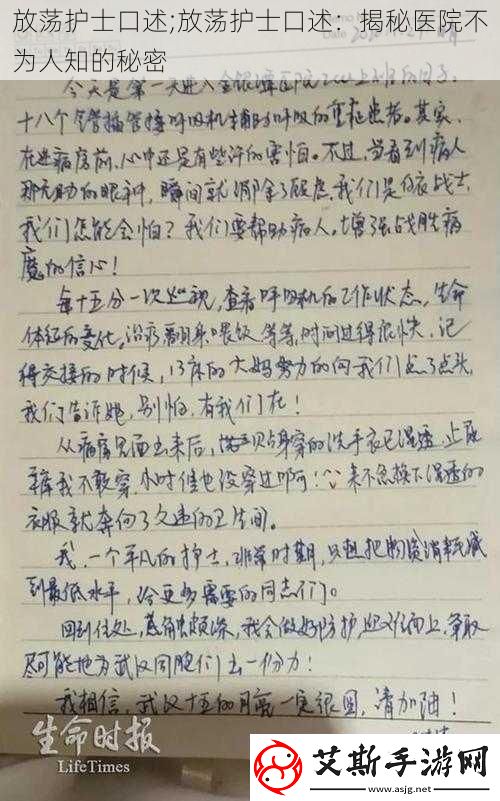 放荡护士口述;放荡护士口述：揭秘医院不
为人知的秘密
今天是第一天进入金银潭医院ICU上班的日子.
十八个气管插管接呼吸机辅助呼吸的重症患者。其实,
在进病房前,心中还是有些许的害怕。不过,当看到病人
那无助的眼神,瞬间就消除了顾虑.我们是白衣战士,
我们怎能会怕？我们要帮助病人,增强战胜病
魔的信心！
每十五分一次巡视,查看呼吸机的工作状态,生命
体征的变化,治疗翻身喂饭等等,时间过得很快.记
得交接的时候,13床的大妈努力的向我们点了点头,
我们告诉她,别怕,有我们在！
从病房里面出来后,贴身穿的洗手衣已湿透,止尿
裤我不敢穿.小时候也没穿过啊！来不急换下湿透的
衣服就奔向了久违的卫生间。
我,一个平凡的护士,非常时期,只想把物资消耗减
到最低水平,给更多需要的同志们。
回到住处,我会做好防护,争取
尽可能地为武汉同胞们出一份力！
我相信,武汉十五的月亮一定很圆,请加油！
生命时报
LifeTimes
艾斯手游网
www.asjg.net